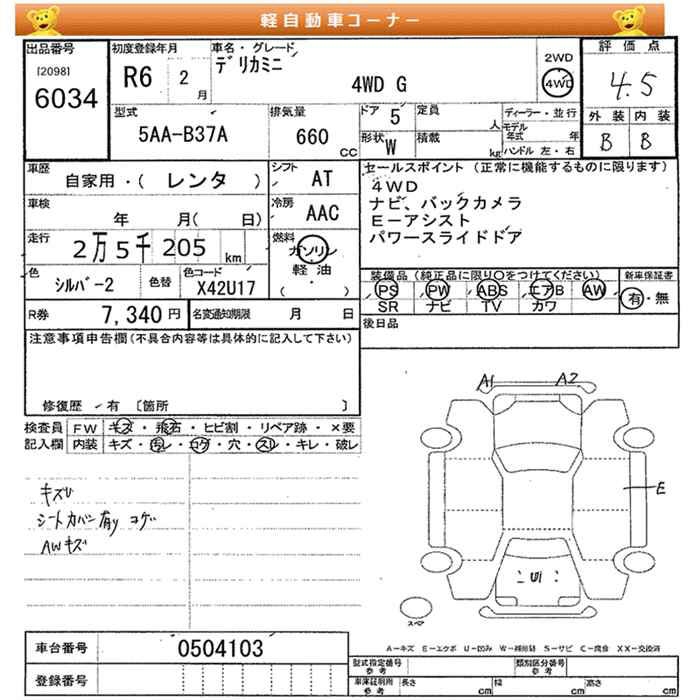 軽自動車コーナー
出品番号
[2098]
6034
初度登録年月
R6 2月
車名・グレード
デリカミニ
4WD G
2WD
4WD
評価点
4.5
外装 内装
B B
型式
5AA-B37A
排気量
660 CC
ドア 5
形状 W
定員 人
積載 kg
ディーラー・並行
モデル年式 年
ハンドル 左・右
車歴
自家用・( レンタ )
シフト
AT
車検
年 月( 日)
冷房
AAC
走行
2万5千205 km
燃料
ガソリン
軽油
( ・ )
色
シルバー2
色替
色コード
X42U17
セールスポイント (正常に機能するものに限ります)
4WD
ナビ、バックカメラ
E-アシスト
パワースライドドア
装備品(純正品に限り○をつけてください)
PS PW ABS エアB AW
SR ナビ TV カワ
新車保証書
有・無
R券 7,340円
名変通知期限 月 日
後日品
注意事項申告欄(不具合内容等は具体的に記入して下さい)
修復歴 有 [箇所 ]
検査員記入欄
FW キズ・飛石・ヒビ割・リペア跡・×要
内装 キズ・汚レ・コゲ・穴・スリ・キレ・破レ
キズU
シートカバー有り コゲ
AWキズ
A1 A2
E
U1
スペア
A-キズ E-エクボ U-凹み W-補修跡 S-サビ C-腐食 XX-交換済
車台番号 0504103
登録番号
型式指定番号 参考
類別区分番号 参考
車庫証明用 参考
長さ cm 幅 cm 高さ cm